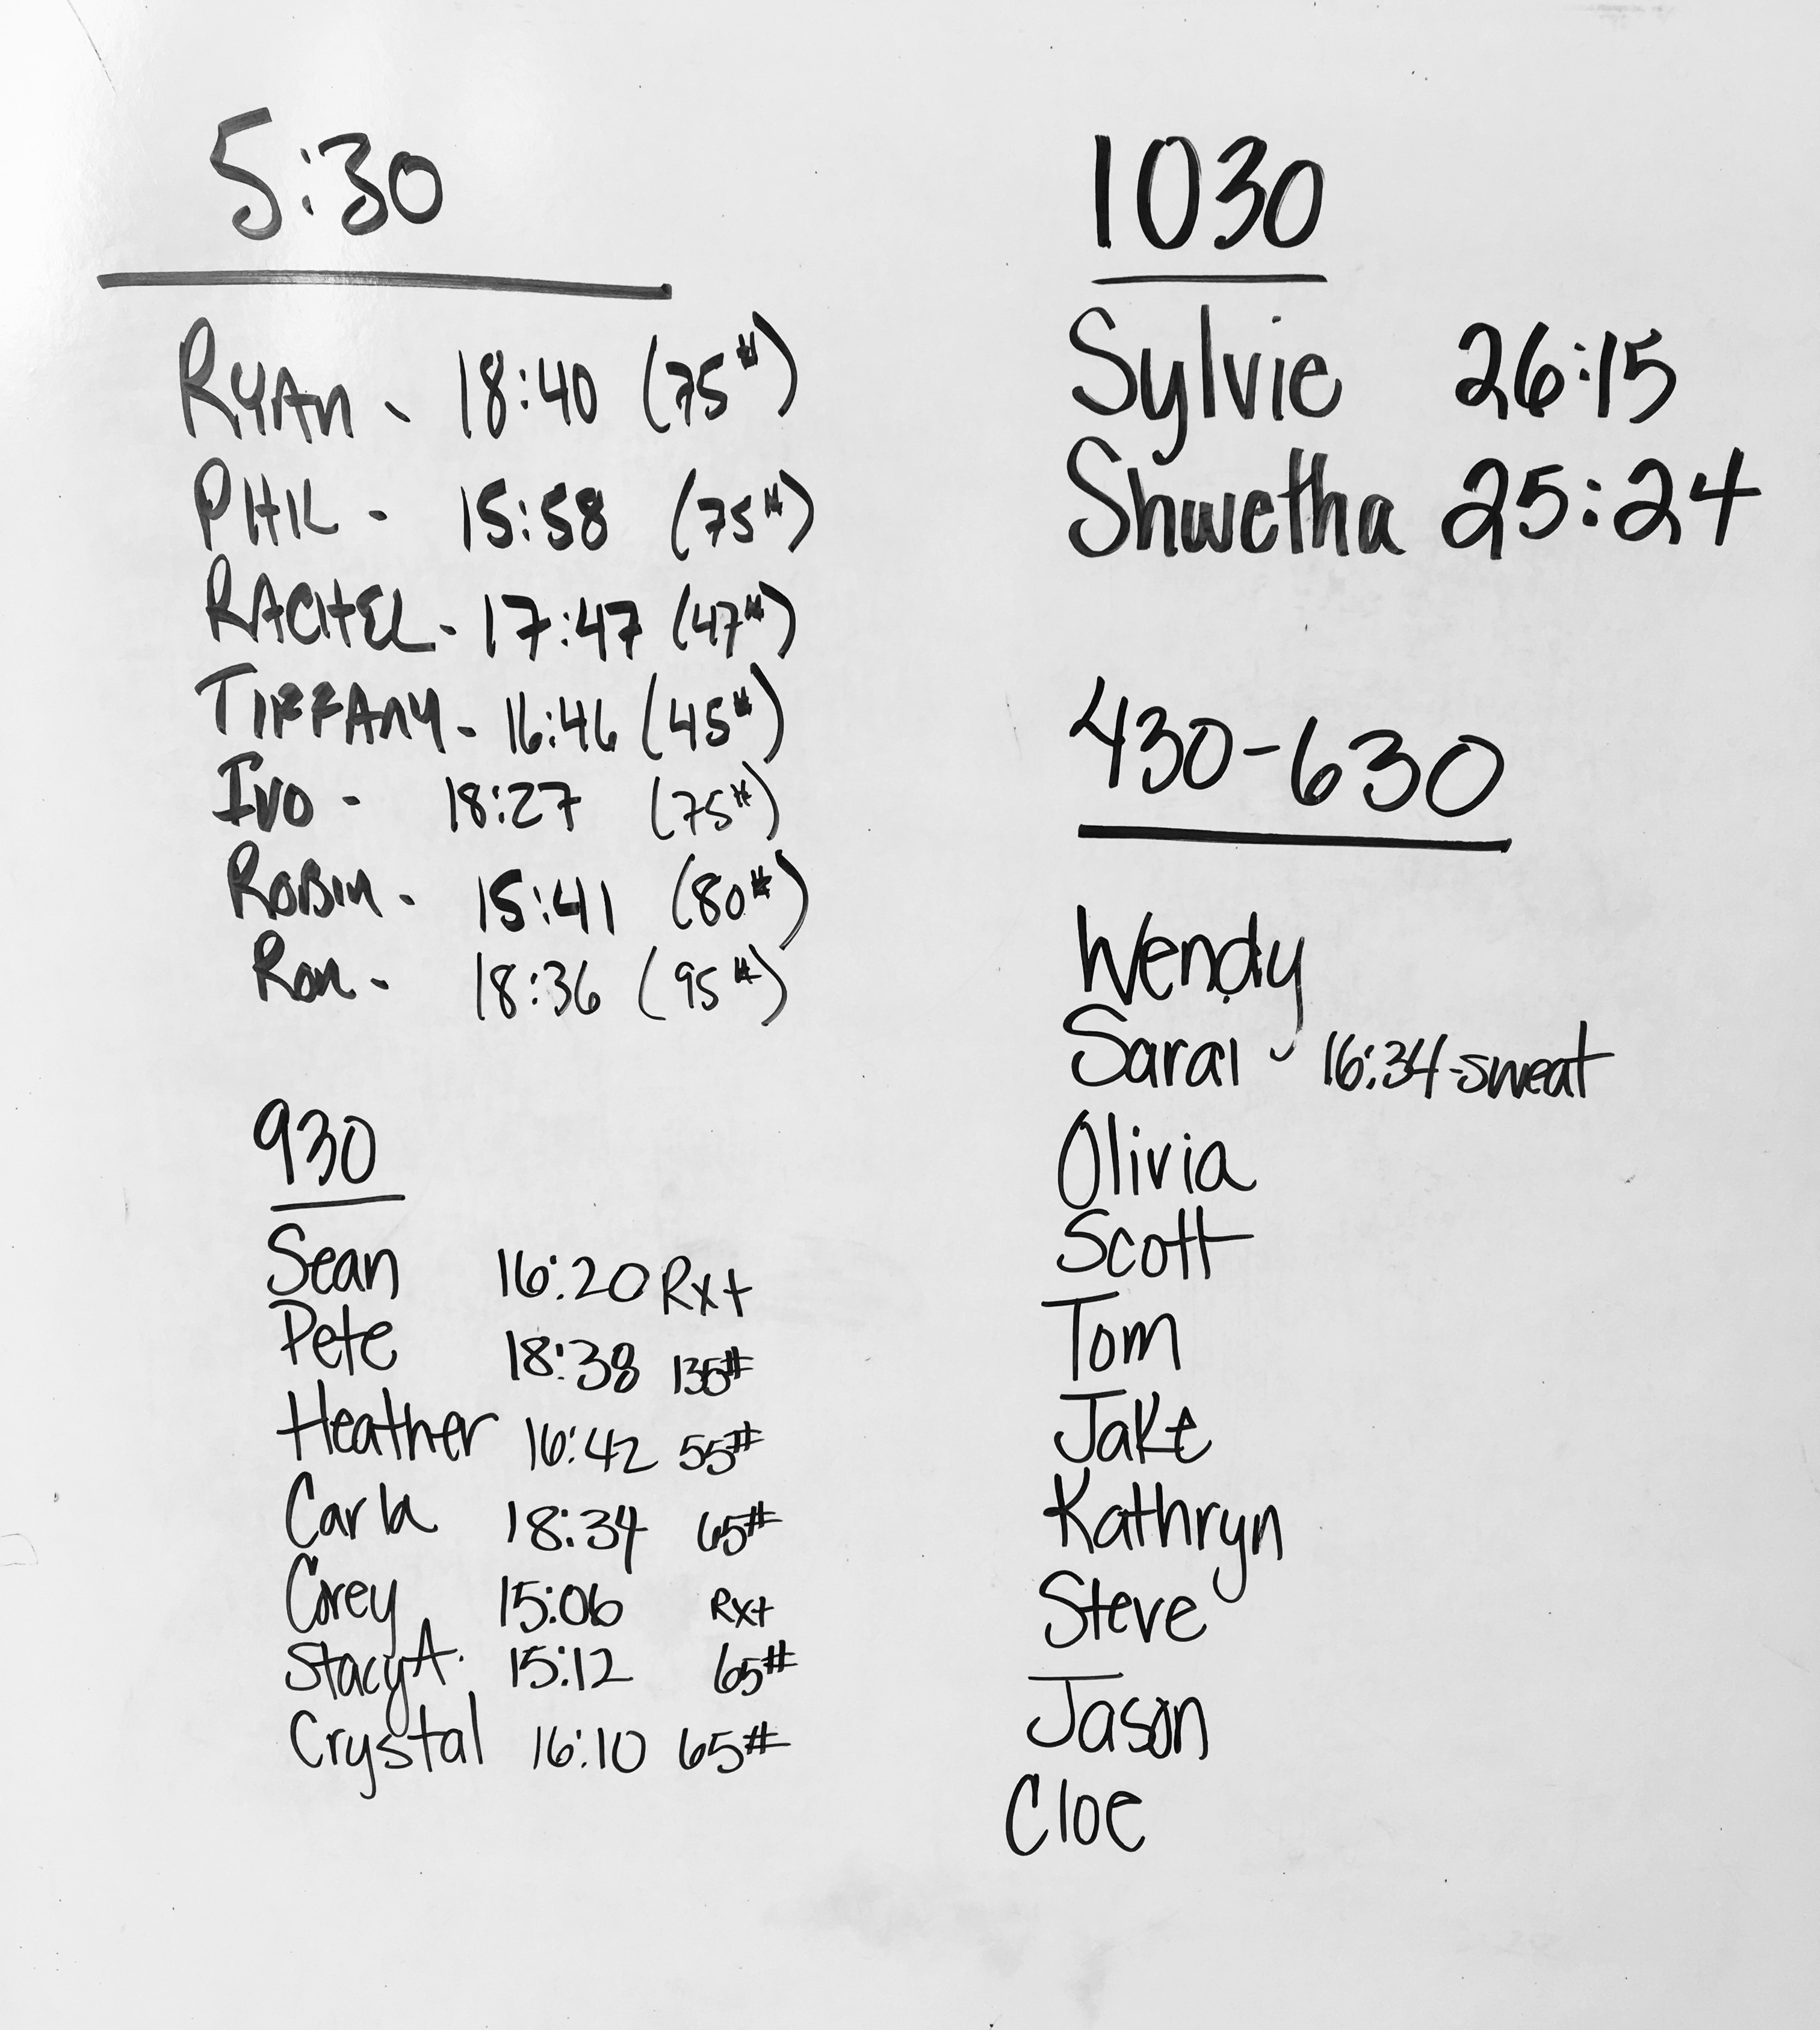 5:30
RYAN - 18:40 (75#)
PHIL - 15:58 (75#)
RACHEL - 17:47 (47#)
TIFFANY - 16:46 (45#)
IVO - 18:27 (75#)
ROBIN - 15:41 (80#)
Ron - 18:36 (95#)
930
Sean 16:20 Rx+
Pete 18:38 135#
Heather 16:42 55#
Carla 18:34 65#
Corey 15:06 Rx+
Stacy A. 15:12 65#
Crystal 16:10 65#
1030
Sylvie 26:15
Shwetha 25:24
430-630
Wendy
Sarai - 16:34-sweat
Olivia
Scott
Tom
Jake
Kathryn
Steve
Jason
Cloe